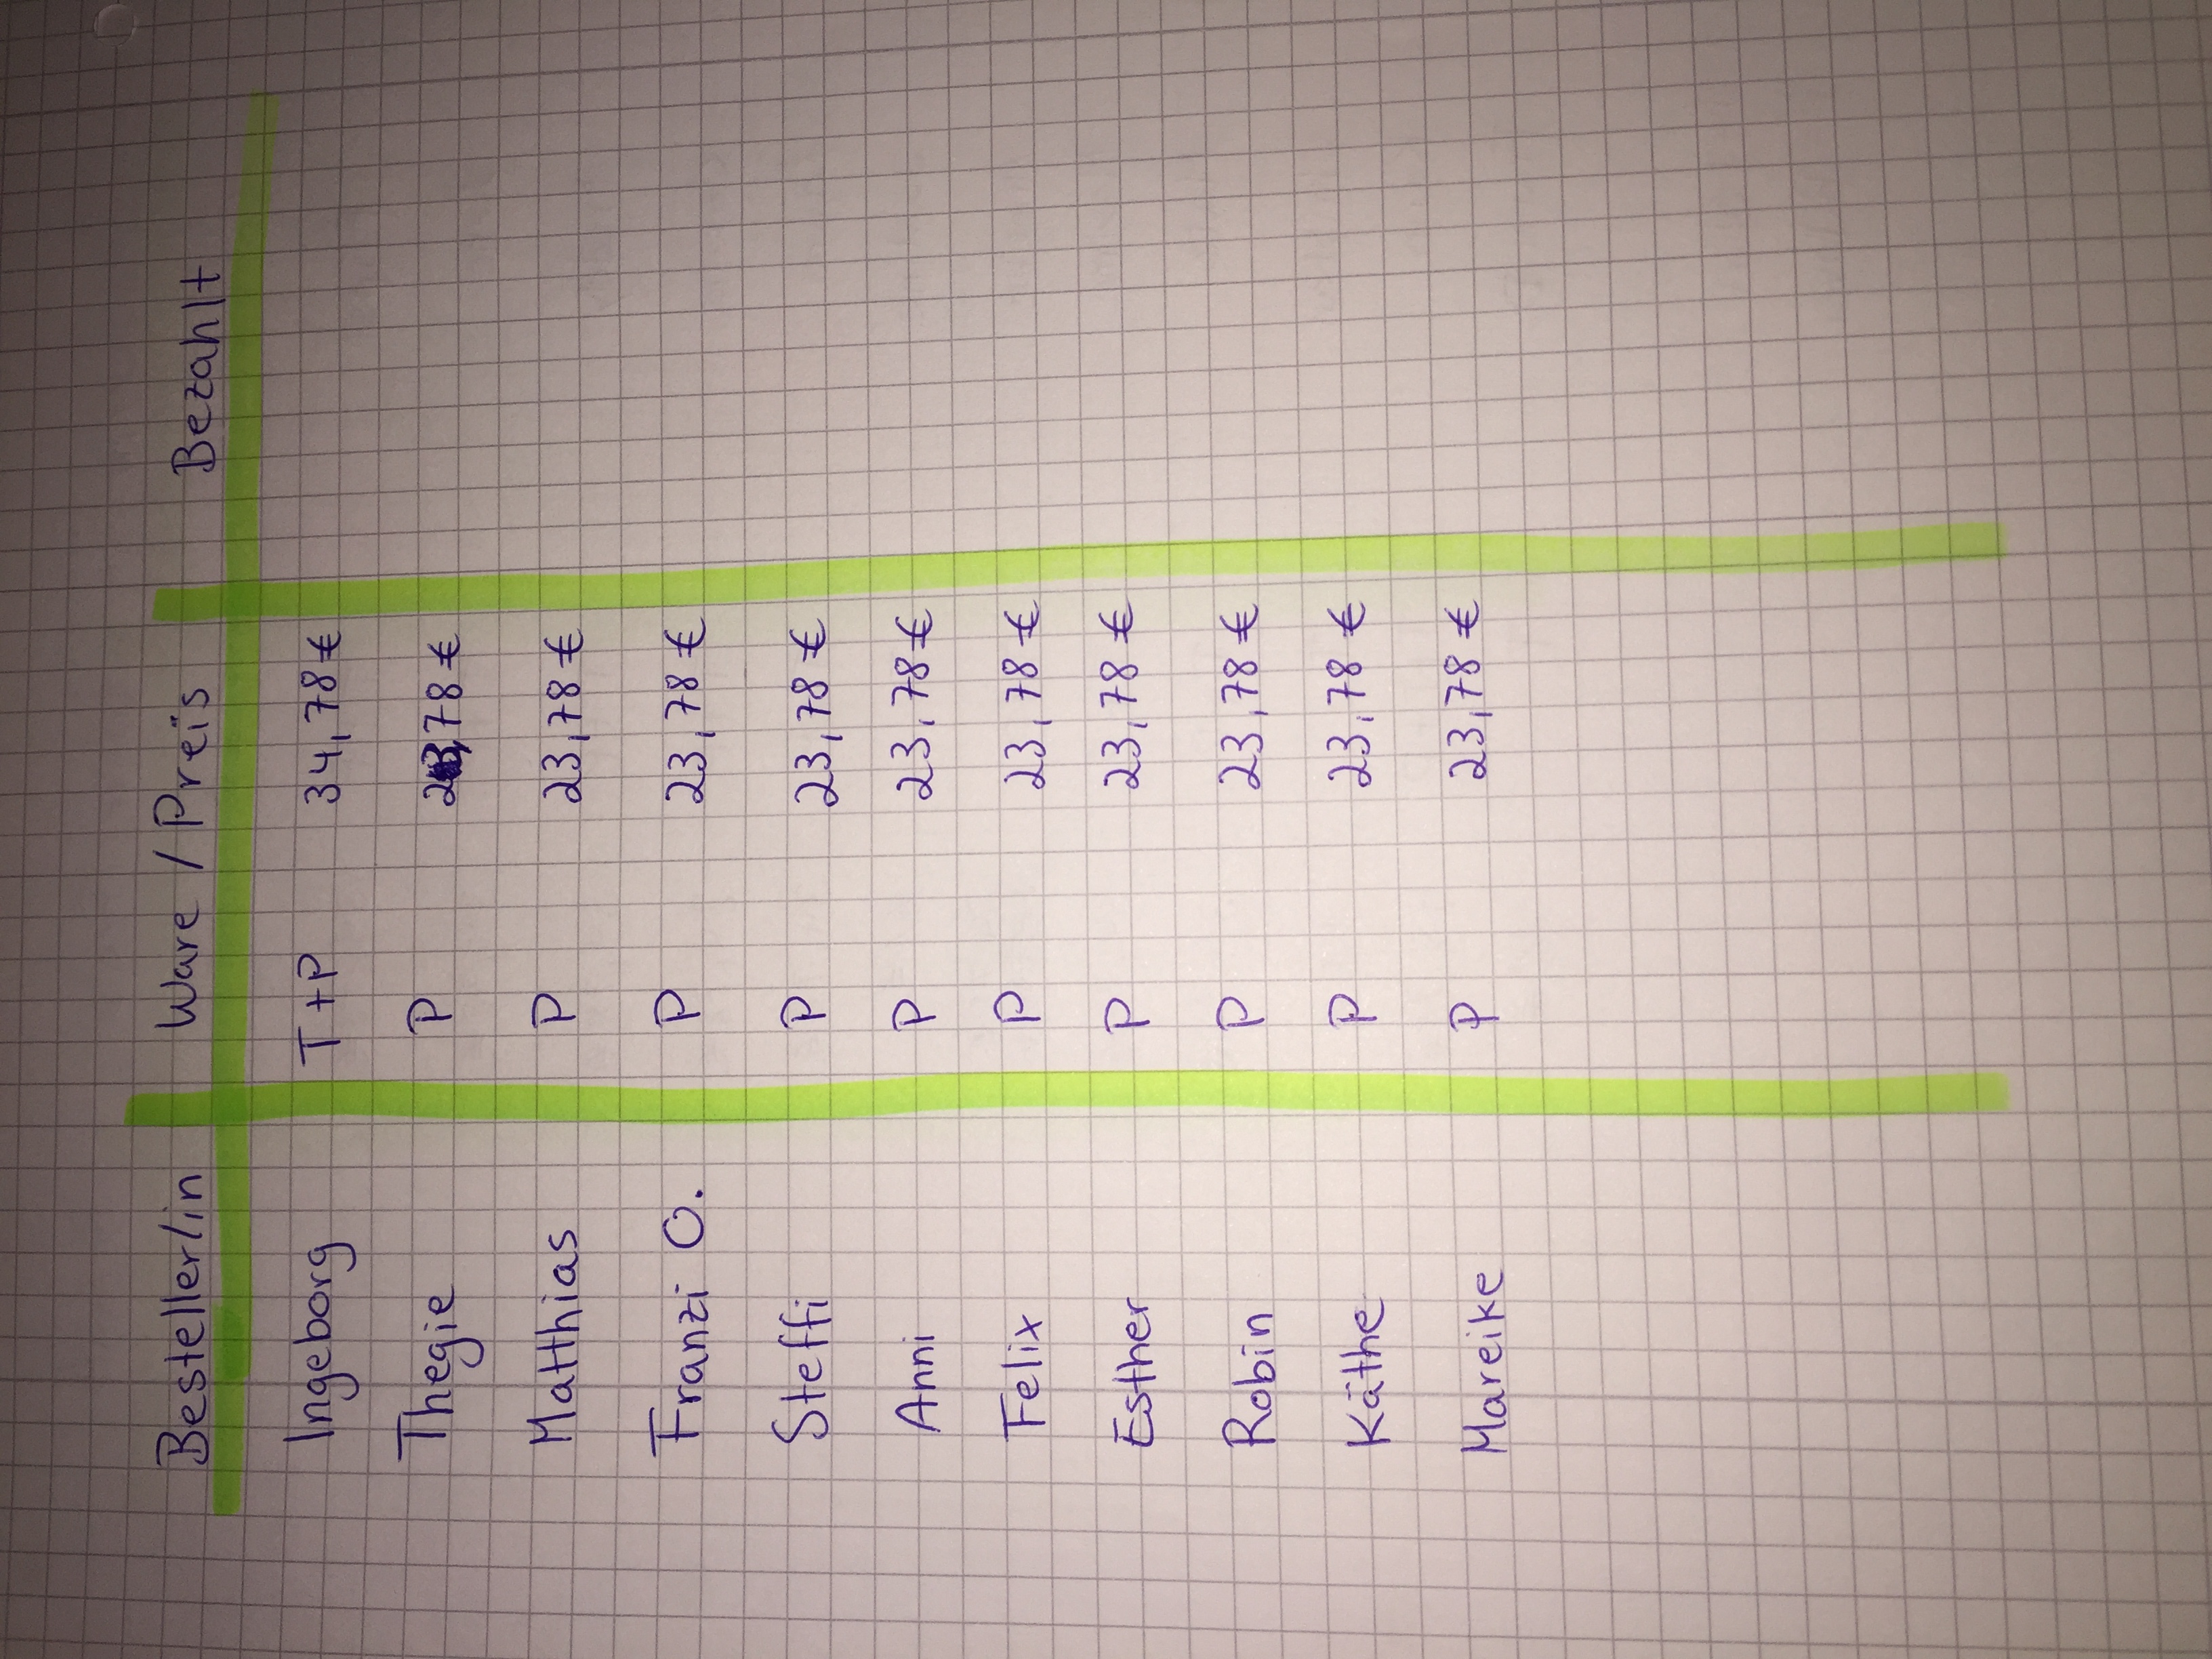 Besteller/in Ware / Preis Bezahlt
Ingeborg T+P 34,78€
Thegie P 23,78€
Matthias P 23,78€
Franzi O. P 23,78€
Steffi P 23,78€
Anni P 23,78€
Felix P 23,78€
Esther P 23,78€
Robin P 23,78€
Käthe P 23,78€
Mareike P 23,78€